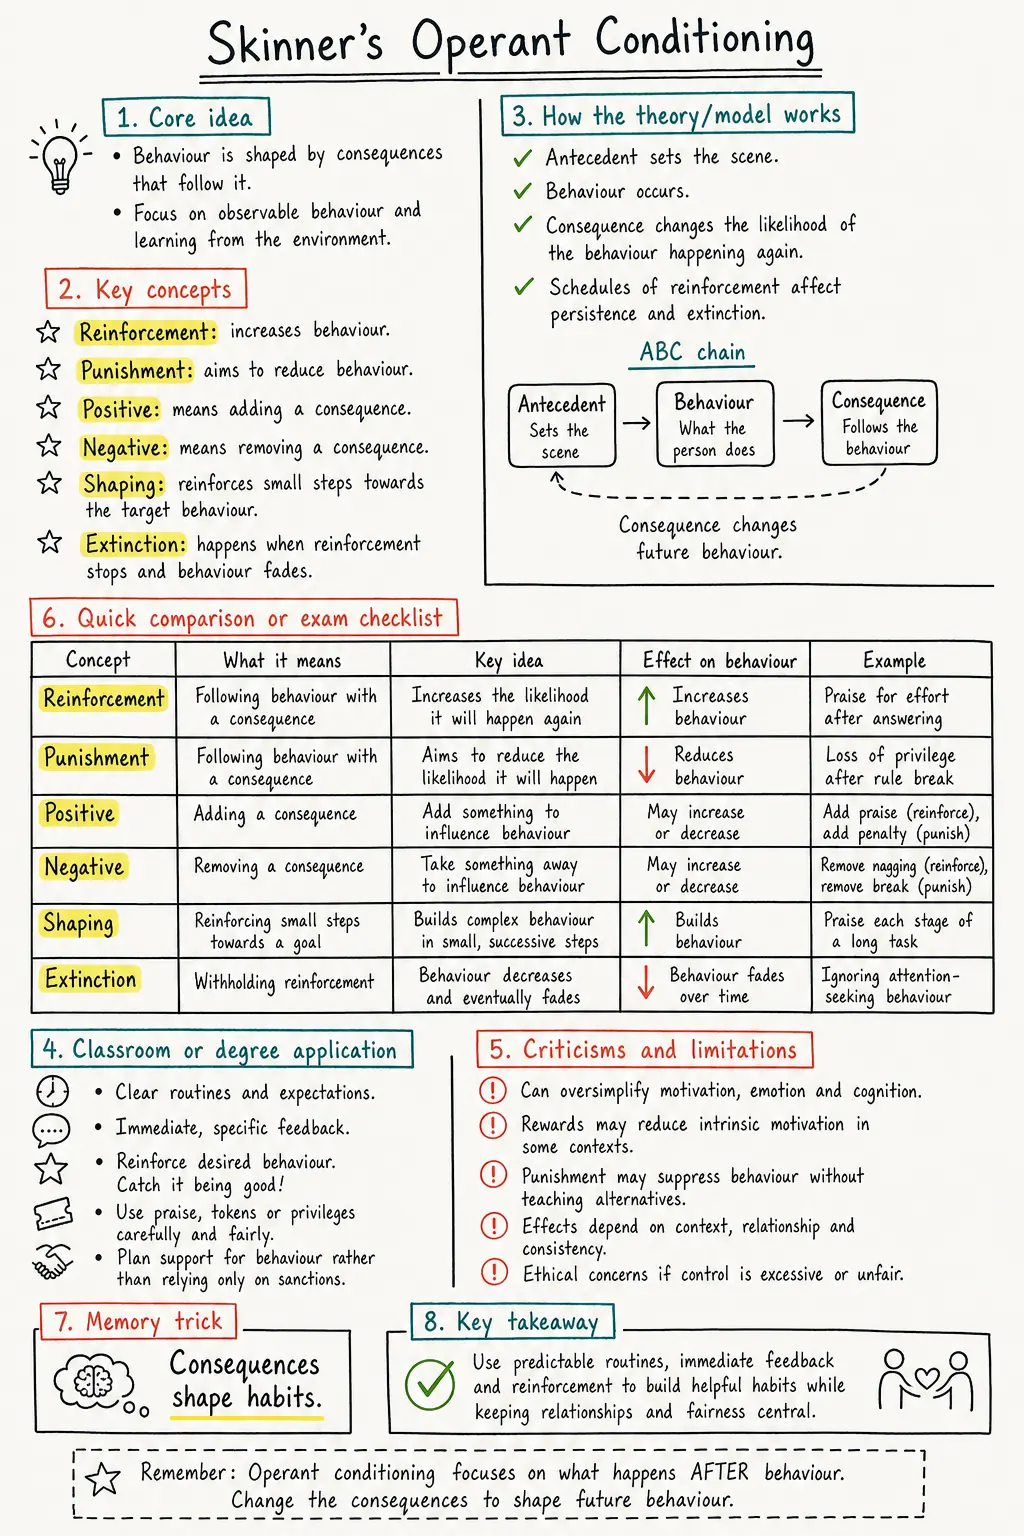 Skinner's Operant Conditioning
1. Core idea
• Behaviour is shaped by consequences
that follow it.
• Focus on observable behaviour and
learning from the environment.
2. Key concepts
Reinforcement: increases behaviour.
Punishment: aims to reduce behaviour.
Positive: means adding a consequence.
Negative: means removing a consequence.
Shaping: reinforces small steps towards
the target behaviour.
Extinction: happens when reinforcement
stops and behaviour fades.
3. How the theory/model works
Antecedent sets the scene.
Behaviour occurs.
Consequence changes the likelihood of
the behaviour happening again.
Schedules of reinforcement affect
persistence and extinction.
ABC chain
Antecedent
Sets the
scene
Behaviour
What the
person does
Consequence
Follows the
behaviour
Consequence changes
future behaviour.
6. Quick comparison or exam checklist
Concept
What it means
Key idea
Effect on behaviour
Example
Reinforcement
Following behaviour with
a consequence
Increases the likelihood
it will happen again
Increases
behaviour
Praise for effort
after answering
Punishment
Following behaviour with
a consequence
Aims to reduce the
likelihood it will happen
Reduces
behaviour
Loss of privilege
after rule break
Positive
Adding a consequence
Add something to
influence behaviour
May increase
or decrease
Add praise (reinforce),
add penalty (punish)
Negative
Removing a consequence
Take something away
to influence behaviour
May increase
or decrease
Remove nagging (reinforce),
remove break (punish)
Shaping
Reinforcing small steps
towards a goal
Builds complex behaviour
in small, successive steps
Builds
behaviour
Praise each stage of
a long task
Extinction
Withholding reinforcement
Behaviour decreases
and eventually fades
Behaviour fades
over time
Ignoring attention-
seeking behaviour
4. Classroom or degree application
• Clear routines and expectations.
• Immediate, specific feedback.
• Reinforce desired behaviour.
Catch it being good!
• Use praise, tokens or privileges
carefully and fairly.
• Plan support for behaviour rather
than relying only on sanctions.
5. Criticisms and limitations
Can oversimplify motivation, emotion and cognition.
Rewards may reduce intrinsic motivation in
some contexts.
Punishment may suppress behaviour without
teaching alternatives.
Effects depend on context, relationship and
consistency.
Ethical concerns if control is excessive or unfair.
7. Memory trick
Consequences
shape habits.
8. Key takeaway
Use predictable routines, immediate feedback
and reinforcement to build helpful habits while
keeping relationships and fairness central.
Remember: Operant conditioning focuses on what happens AFTER behaviour.
Change the consequences to shape future behaviour.